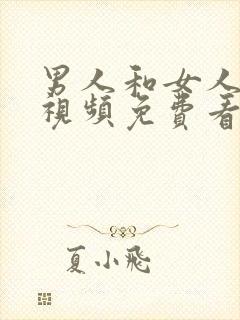 男人和女人
視頻免費看
夏小飛